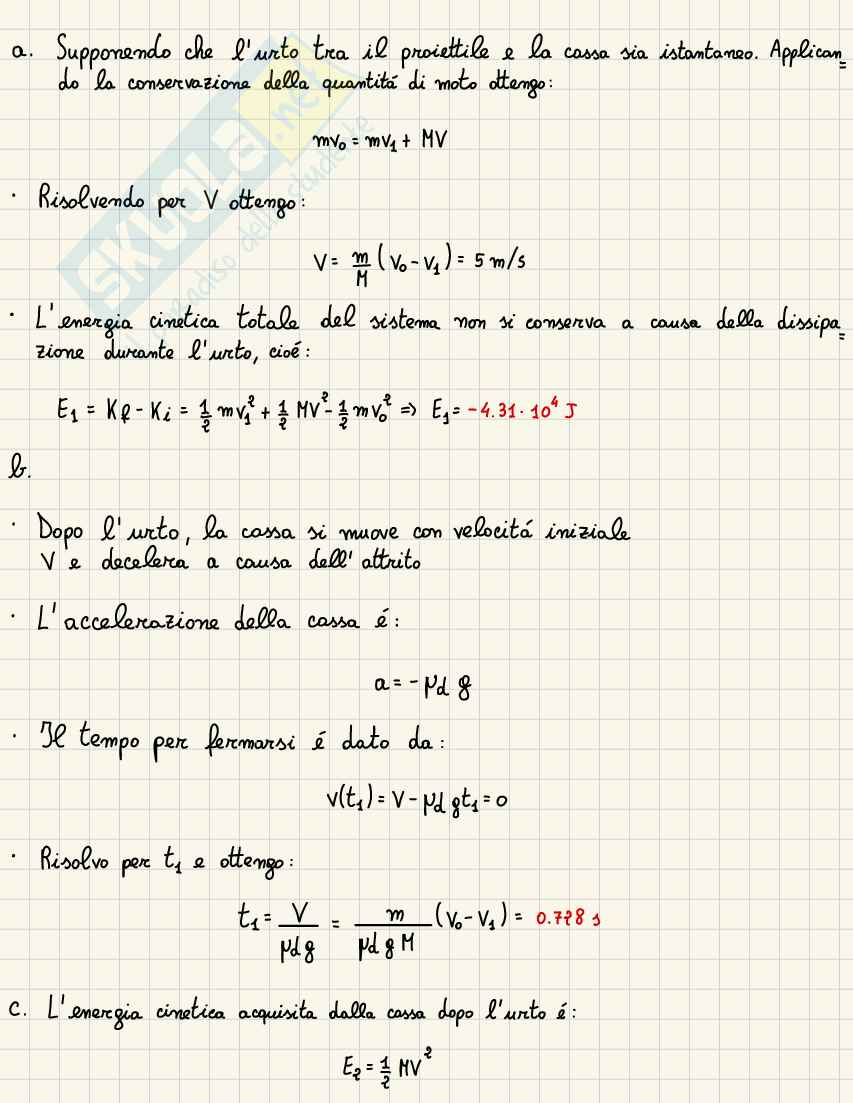 a. Supponendo che l'urto tra il proiettile e la cassa sia istantaneo. Applican=
do la conservazione della quantitá di moto ottengo:
mv₀ = mv₁ + MV
· Risolvendo per V ottengo:
V = m/M (v₀ - v₁) = 5 m/s
· L'energia cinetica totale del sistema non si conserva a causa della dissipa=
zione durante l'urto, cioé:
E₁ = Kf - Ki = 1/2 mv₁² + 1/2 MV² - 1/2 mv₀² => E₁ = -4.31 · 10⁴ J
b.
· Dopo l'urto, la cassa si muove con velocitá iniziale
V e decelera a causa dell'attrito
· L'accelerazione della cassa é:
a = - μd g
· Il tempo per fermarsi é dato da:
v(t₁) = V - μd gt₁ = 0
· Risolvo per t₁ e ottengo:
t₁ = V/μd g = m/μd g M (v₀ - v₁) = 0.728 s
c. L'energia cinetica acquisita dalla cassa dopo l'urto é:
E₂ = 1/2 MV²
SKUOLA.net
il paradiso dello studente